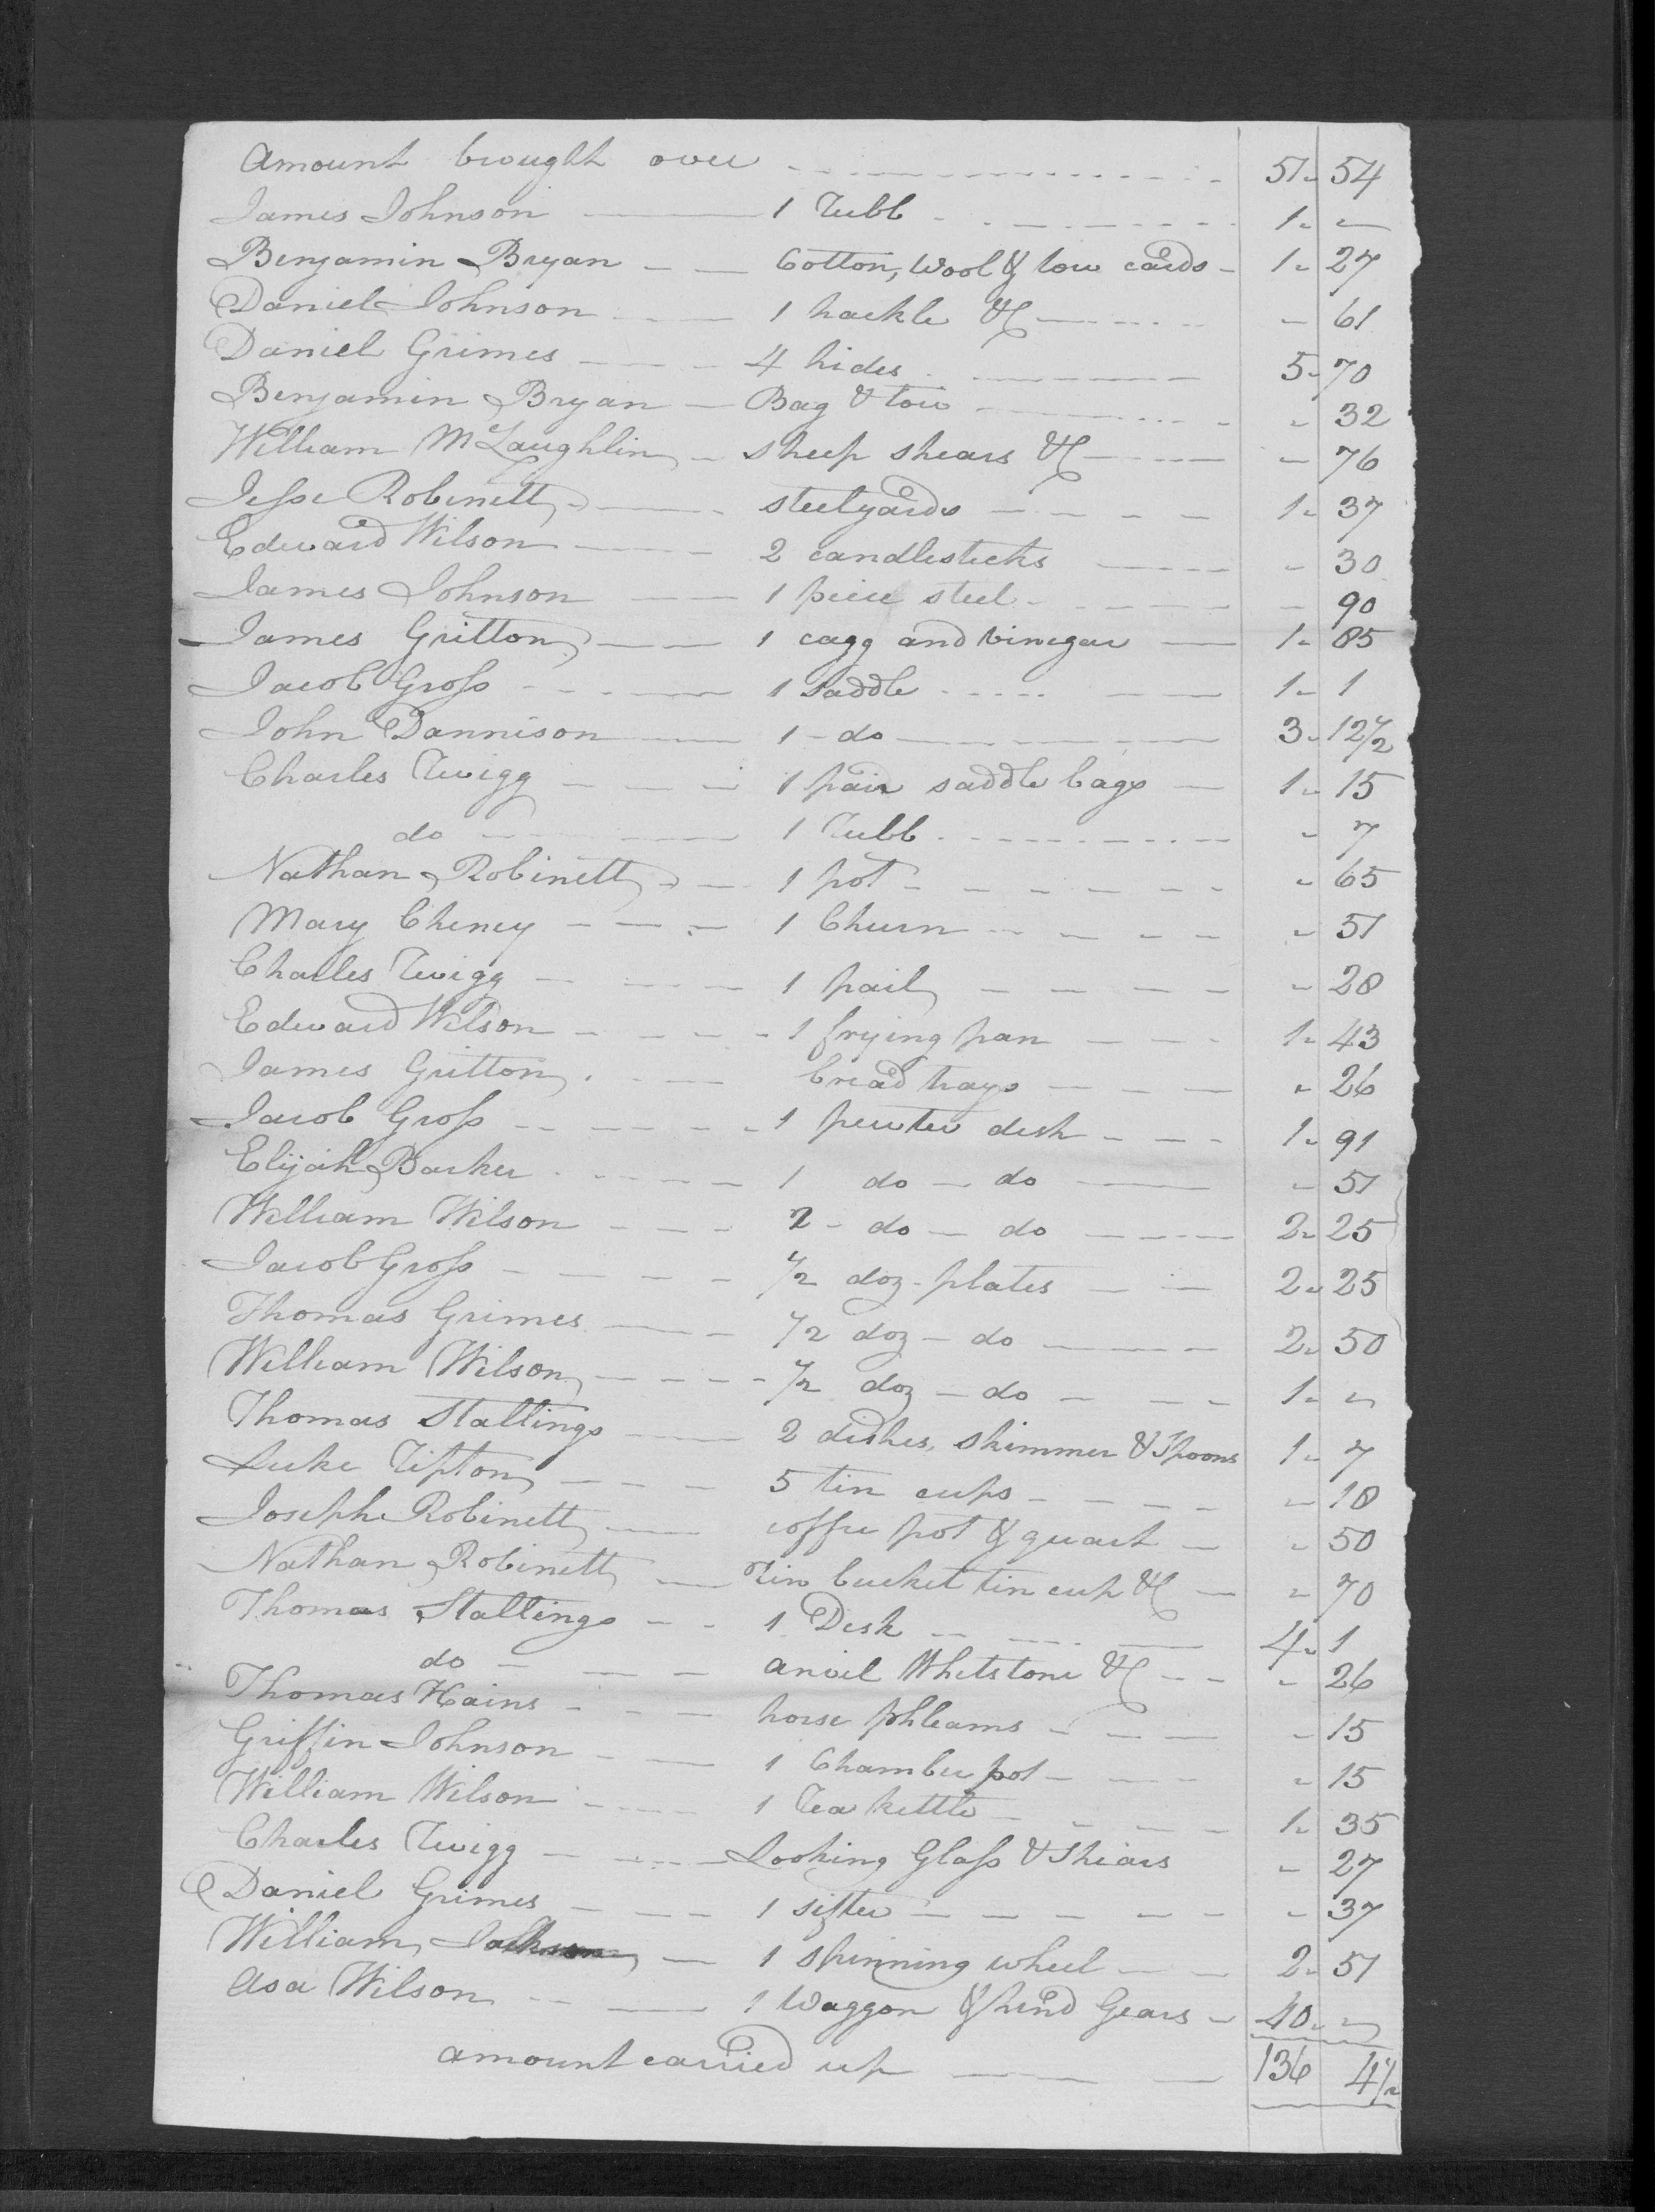 Amount brought over 51 54
James Johnson 1 Tubb 1
Benjamin Bryan Cotton, Wool & tow cards 1 27
Daniel Johnson 1 hackle &C 61
Daniel Grimes 4 hides 5 70
Benjamin Bryan Bag & tow 32
William McLaughlin sheep shears &C 76
Jesse Robinett steelyards 1 37
Edward Wilson 2 candlesticks 30
James Johnson 1 piece steel 90
James Gritton 1 cagg and vinegar 1 85
Jacob Gross 1 saddle 1 1
John Dannison 1 do 3 12 1/2
Charles Twigg 1 pair saddle bags 1 15
do 1 Tubb 7
Nathan Robinett 1 pot 65
Mary Cheney 1 Churn 51
Charles Twigg 1 pail 28
Edward Wilson 1 frying pan 1 43
James Gritton bread trays 26
Jacob Gross 1 pewter dish 1 91
Elijah Barker 1 do do 51
William Wilson 2 do do 2 25
Jacob Gross 1/2 doz plates 2 25
Thomas Grimes 1/2 doz do 2 50
William Wilson 1/2 doz do 1
Thomas Stallings 2 dishes, skimmer & Spoons 1 7
Luke Tipton 5 tin cups 18
Joseph Robinett coffee pot & quart 50
Nathan Robinett Tin bucket tin cup &C 70
Thomas Stallings 1 Desk 4 1
do anvil Whetstone &C 26
Thomas Hains horse phleams 15
Griffin Johnson 1 Chamber pot 15
William Wilson 1 Tea kettle 1 35
Charles Twigg Looking Glass & Shears 27
Daniel Grimes 1 sifter 37
William Jackson 1 spinning wheel 2 51
Asa Wilson 1 Waggon & hind Gears 40
amount carried up 136 4 1/2